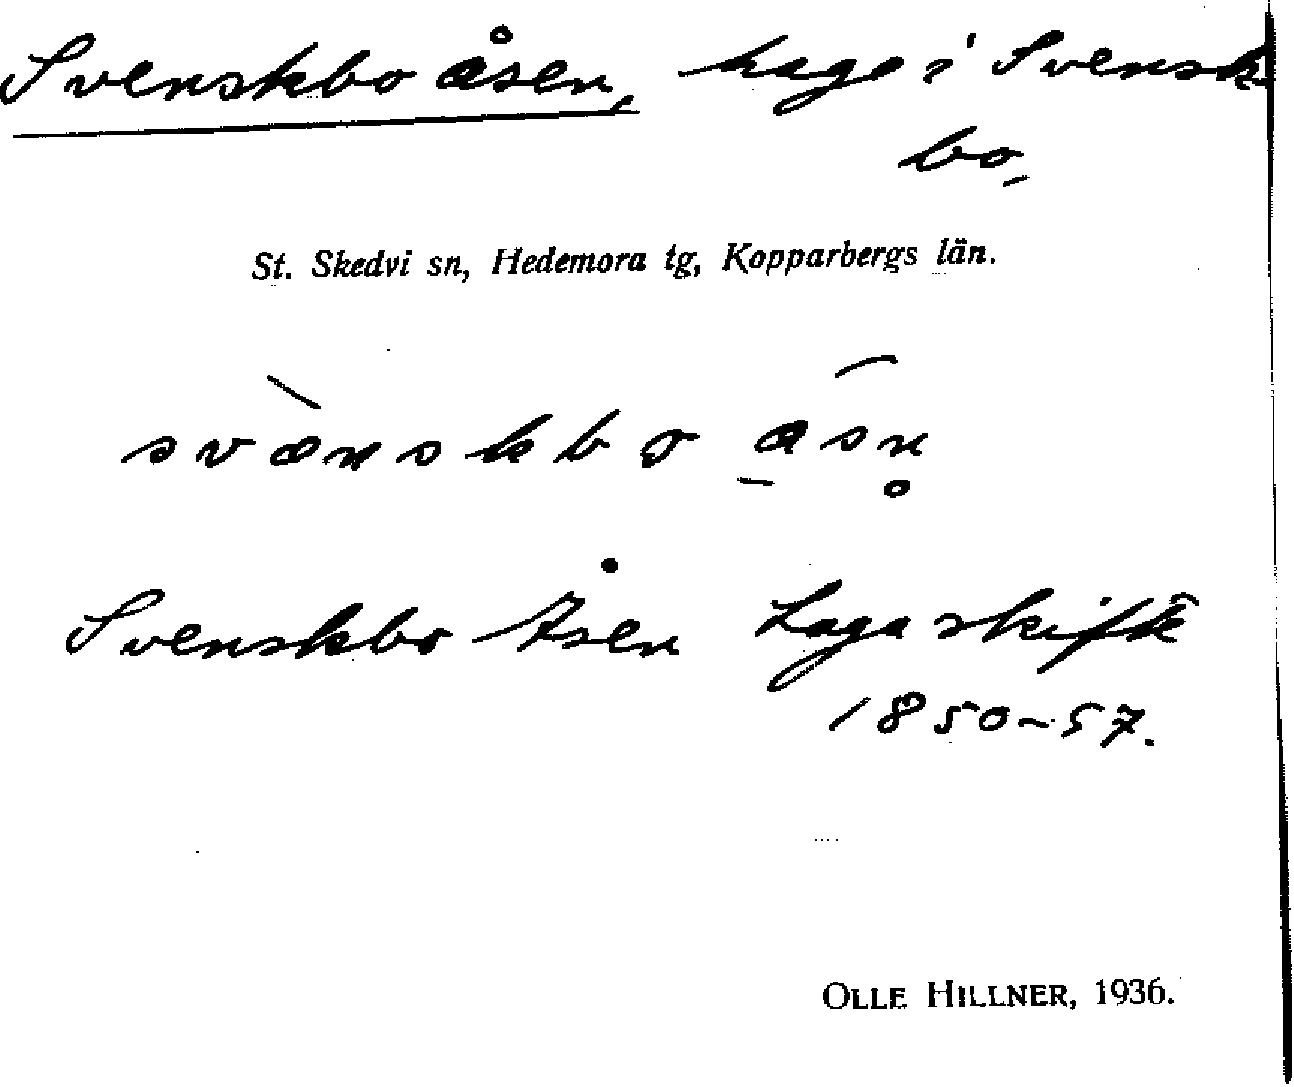 Svenskbo åsen, hage i Svensk
bo,
St. Skedvi sn, Hedemora tg, Kopparbergs län.
svæ̀nskbo a̱̅sn̥
Svenskbo Åsen Laga skifte
1850-57.
OLLE HILLNER, 1936.